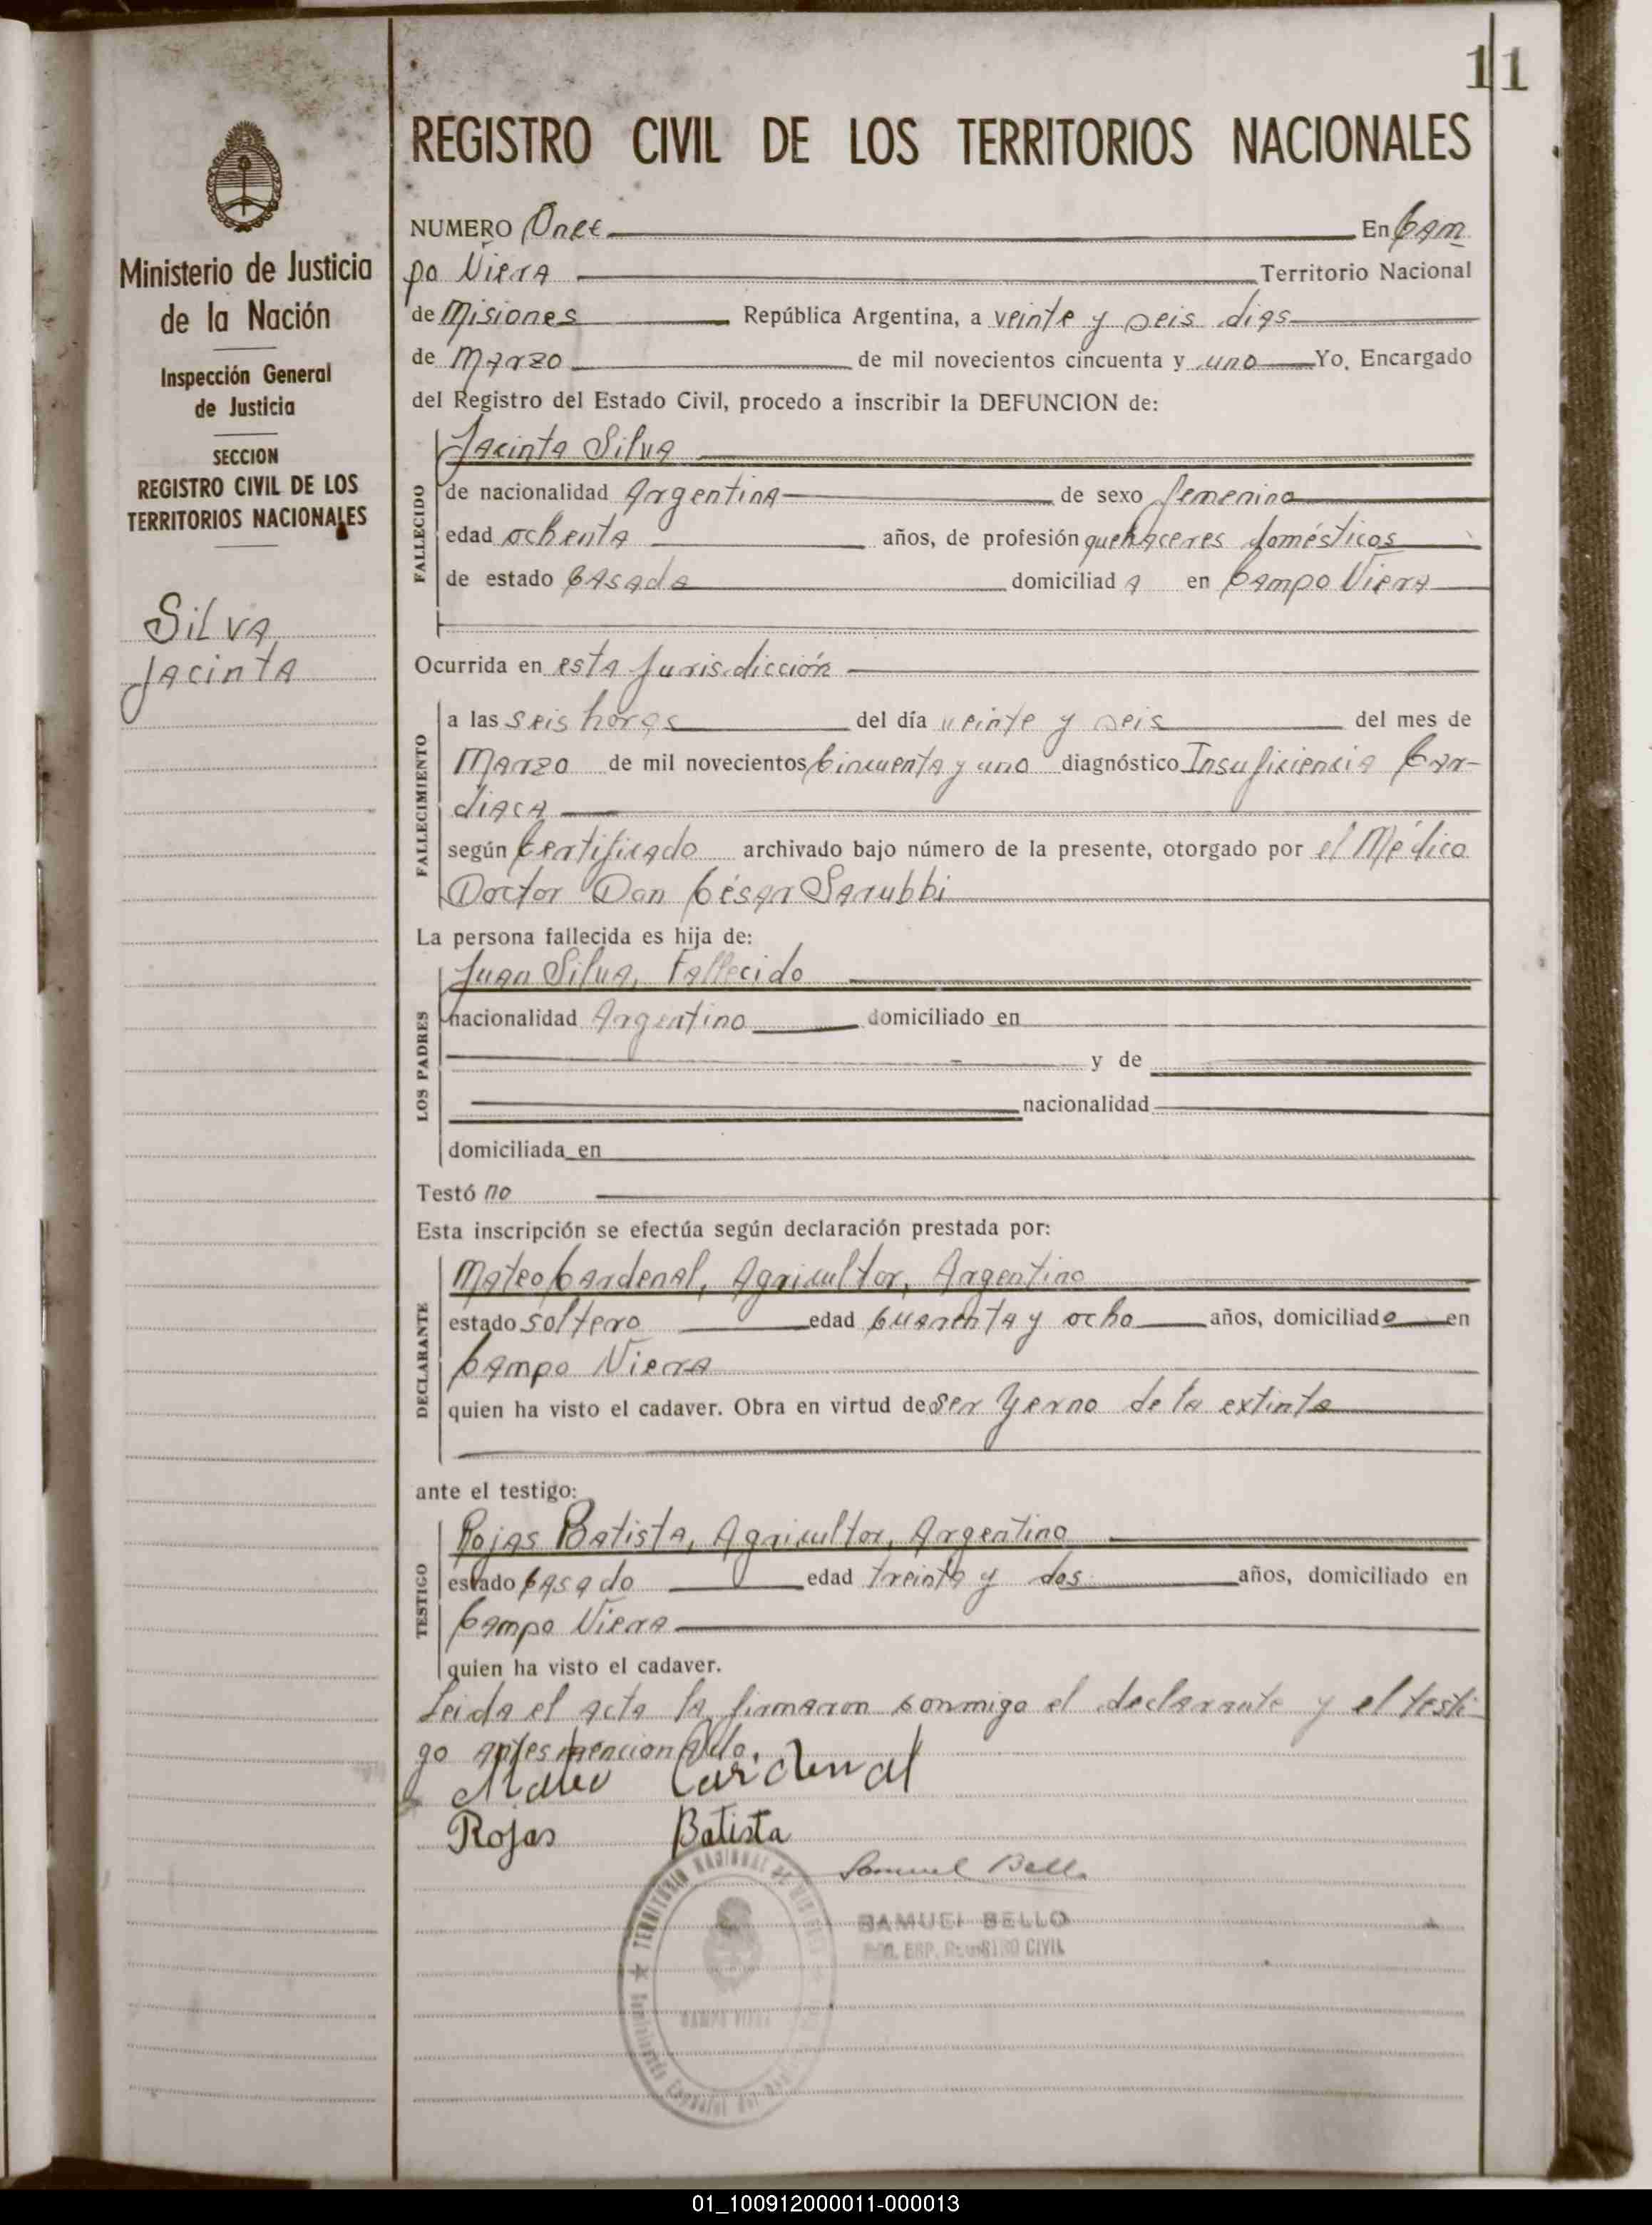 11
REGISTRO CIVIL DE LOS TERRITORIOS NACIONALES
Ministerio de Justicia
de la Nación
Inspección General
de Justicia
SECCION
REGISTRO CIVIL DE LOS
TERRITORIOS NACIONALES
SilVA
JacintA
NUMERO Once En Cam
po Viera Territorio Nacional
de Misiones República Argentina, a veinte y seis dias
de Marzo de mil novecientos cincuenta y uno Yo, Encargado
del Registro del Estado Civil, procedo a inscribir la DEFUNCION de:
FALLECIDO
Jacinta Silva
de nacionalidad Argentina de sexo femenino
edad ochenta años, de profesión quehaceres domésticos
de estado Casada domiciliad a en Campo Viera
Ocurrida en esta Jurisdicción
FALLECIMIENTO
a las seis horas del día veinte y seis del mes de
Marzo de mil novecientos Cincuenta y uno diagnóstico Insuficiencia Car-
diaca
según Certificado archivado bajo número de la presente, otorgado por el Médico
Doctor Don César Sarubbi
La persona fallecida es hija de:
LOS PADRES
Juan Silva, Fallecido
nacionalidad Argentino domiciliado en
y de
nacionalidad
domiciliada en
Testó no
Esta inscripción se efectúa según declaración prestada por:
DECLARANTE
Mateo Cardenal, Agricultor, Argentino
estado soltero edad Cuarenta y ocho años, domiciliado en
Campo Viera
quien ha visto el cadaver. Obra en virtud de ser Yerno de la extinta
ante el testigo:
TESTIGO
Rojas Batista, Agricultor, Argentino
estado Casado edad treinta y dos años, domiciliado en
Campo Viera
quien ha visto el cadaver.
Leida el acta la firmaron conmigo el declarante y el testi-
go antes mencionado.
Mateo Cardenal
Rojas Batista
Samuel Bello
SAMUEL BELLO
REGISTRO CIVIL
TERRITORIO NACIONAL DE MISIONES
CAMPO VIERA
01_100912000011-000013